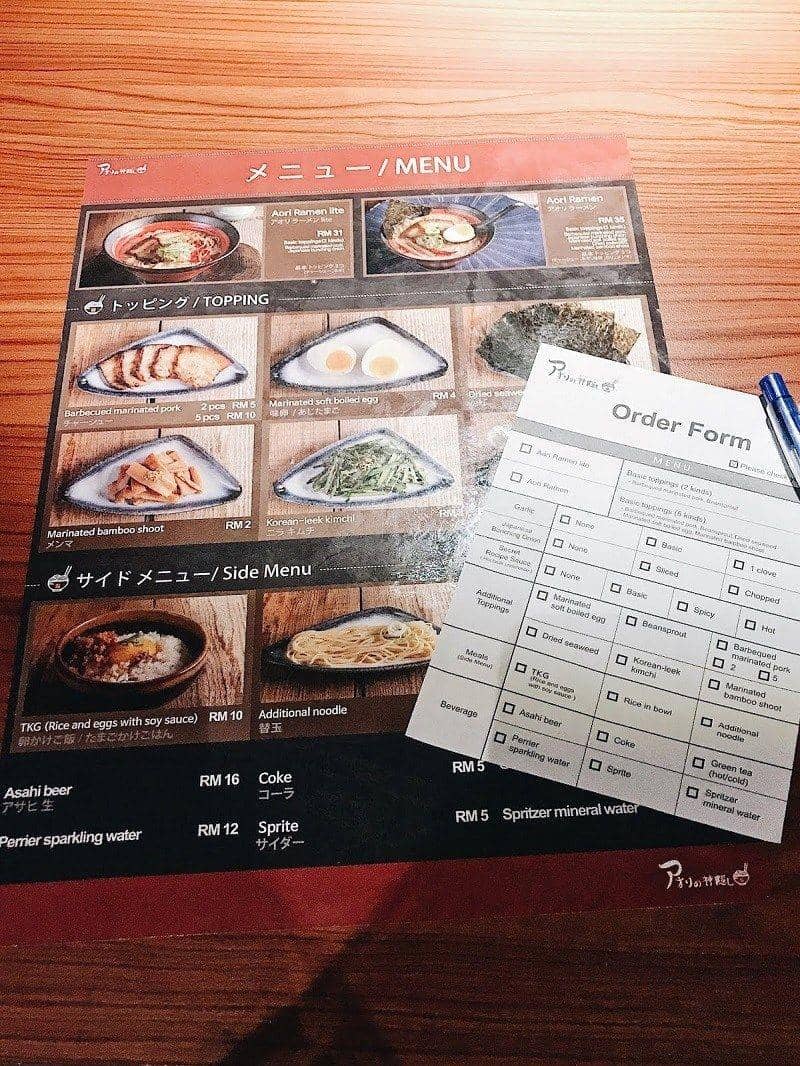 アオリの神隠し
メニュー/MENU
Aori Ramen lite
アオリラーメン lite
RM 31
Basic toppings(2 kinds)
Aori Ramen
アオリラーメン
RM 35
トッピング / TOPPING
Barbecued marinated pork 2 pcs RM 5
チャーシュー 5 pcs RM 10
Marinated soft boiled egg RM 4
味卵 / あじたまご
Dried seawe
Marinated bamboo shoot RM 2
メンマ
Korean-leek kimchi
ニラキムチ
サイドメニュー/ Side Menu
TKG (Rice and eggs with soy sauce) RM 10
卵かけご飯 / たまごかけごはん
Additional noodle
替玉
Asahi beer RM 16
アサヒ 生
Coke RM 5
コーラ
Perrier sparkling water RM 12
Sprite RM 5
サイダー
Spritzer mineral water
アオリの神隠し
アオリの神隠し
Order Form
MENU
Please check
Aori Ramen lite
Basic toppings (2 kinds)
Aori Ramen
Basic toppings (5 kinds)
Garlic
None
Basic
1 clove
Japanese
Bunching Onion
None
Sliced
Chopped
Secret
Recipe Sauce
None
Basic
Spicy
Hot
Additional
Toppings
Marinated
soft boiled egg
Beansprout
Barbequed
marinated pork
2 5
Dried seaweed
Korean-leek
kimchi
Marinated
bamboo shoot
Meals
(Side Menu)
TKG
(Rice and eggs
with soy sauce )
Rice in bowl
Additional
noodle
Beverage
Asahi beer
Coke
Green tea
(hot/cold)
Perrier
sparkling water
Sprite
Spritzer
mineral water